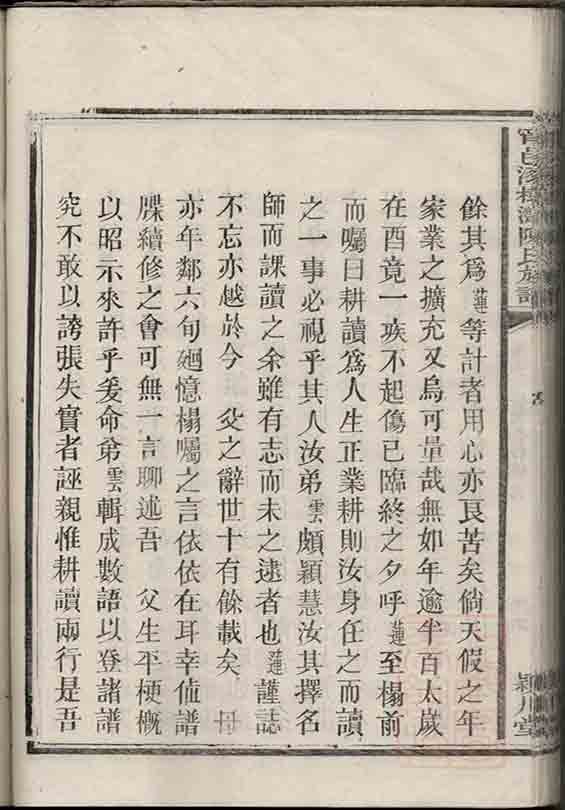 餘其爲蓮等計者用心亦艮苦矣倘天假之年
家業之擴充又烏可量哉無如年逾半百太歲
在酉竟一疾不起傷已臨終之夕呼蓮至榻前
而囑曰耕讀爲人生正業耕則汝身任之而讀
之一事必視乎其人汝弟雲頗穎慧汝其擇名
師而課讀之余雖有志而未之逮者也蓮謹誌
不忘亦越於今 父之辭世十有餘載矣 母
亦年鄰六旬廻憶榻囑之言依依在耳幸值譜
牒續修之會可無一言聊述吾 父生平梗概
以昭示來許乎爰命弟雲輯成數語以登諸譜
究不敢以誇張失實者誣親惟耕讀兩行是吾
陳氏族譜
潁川堂